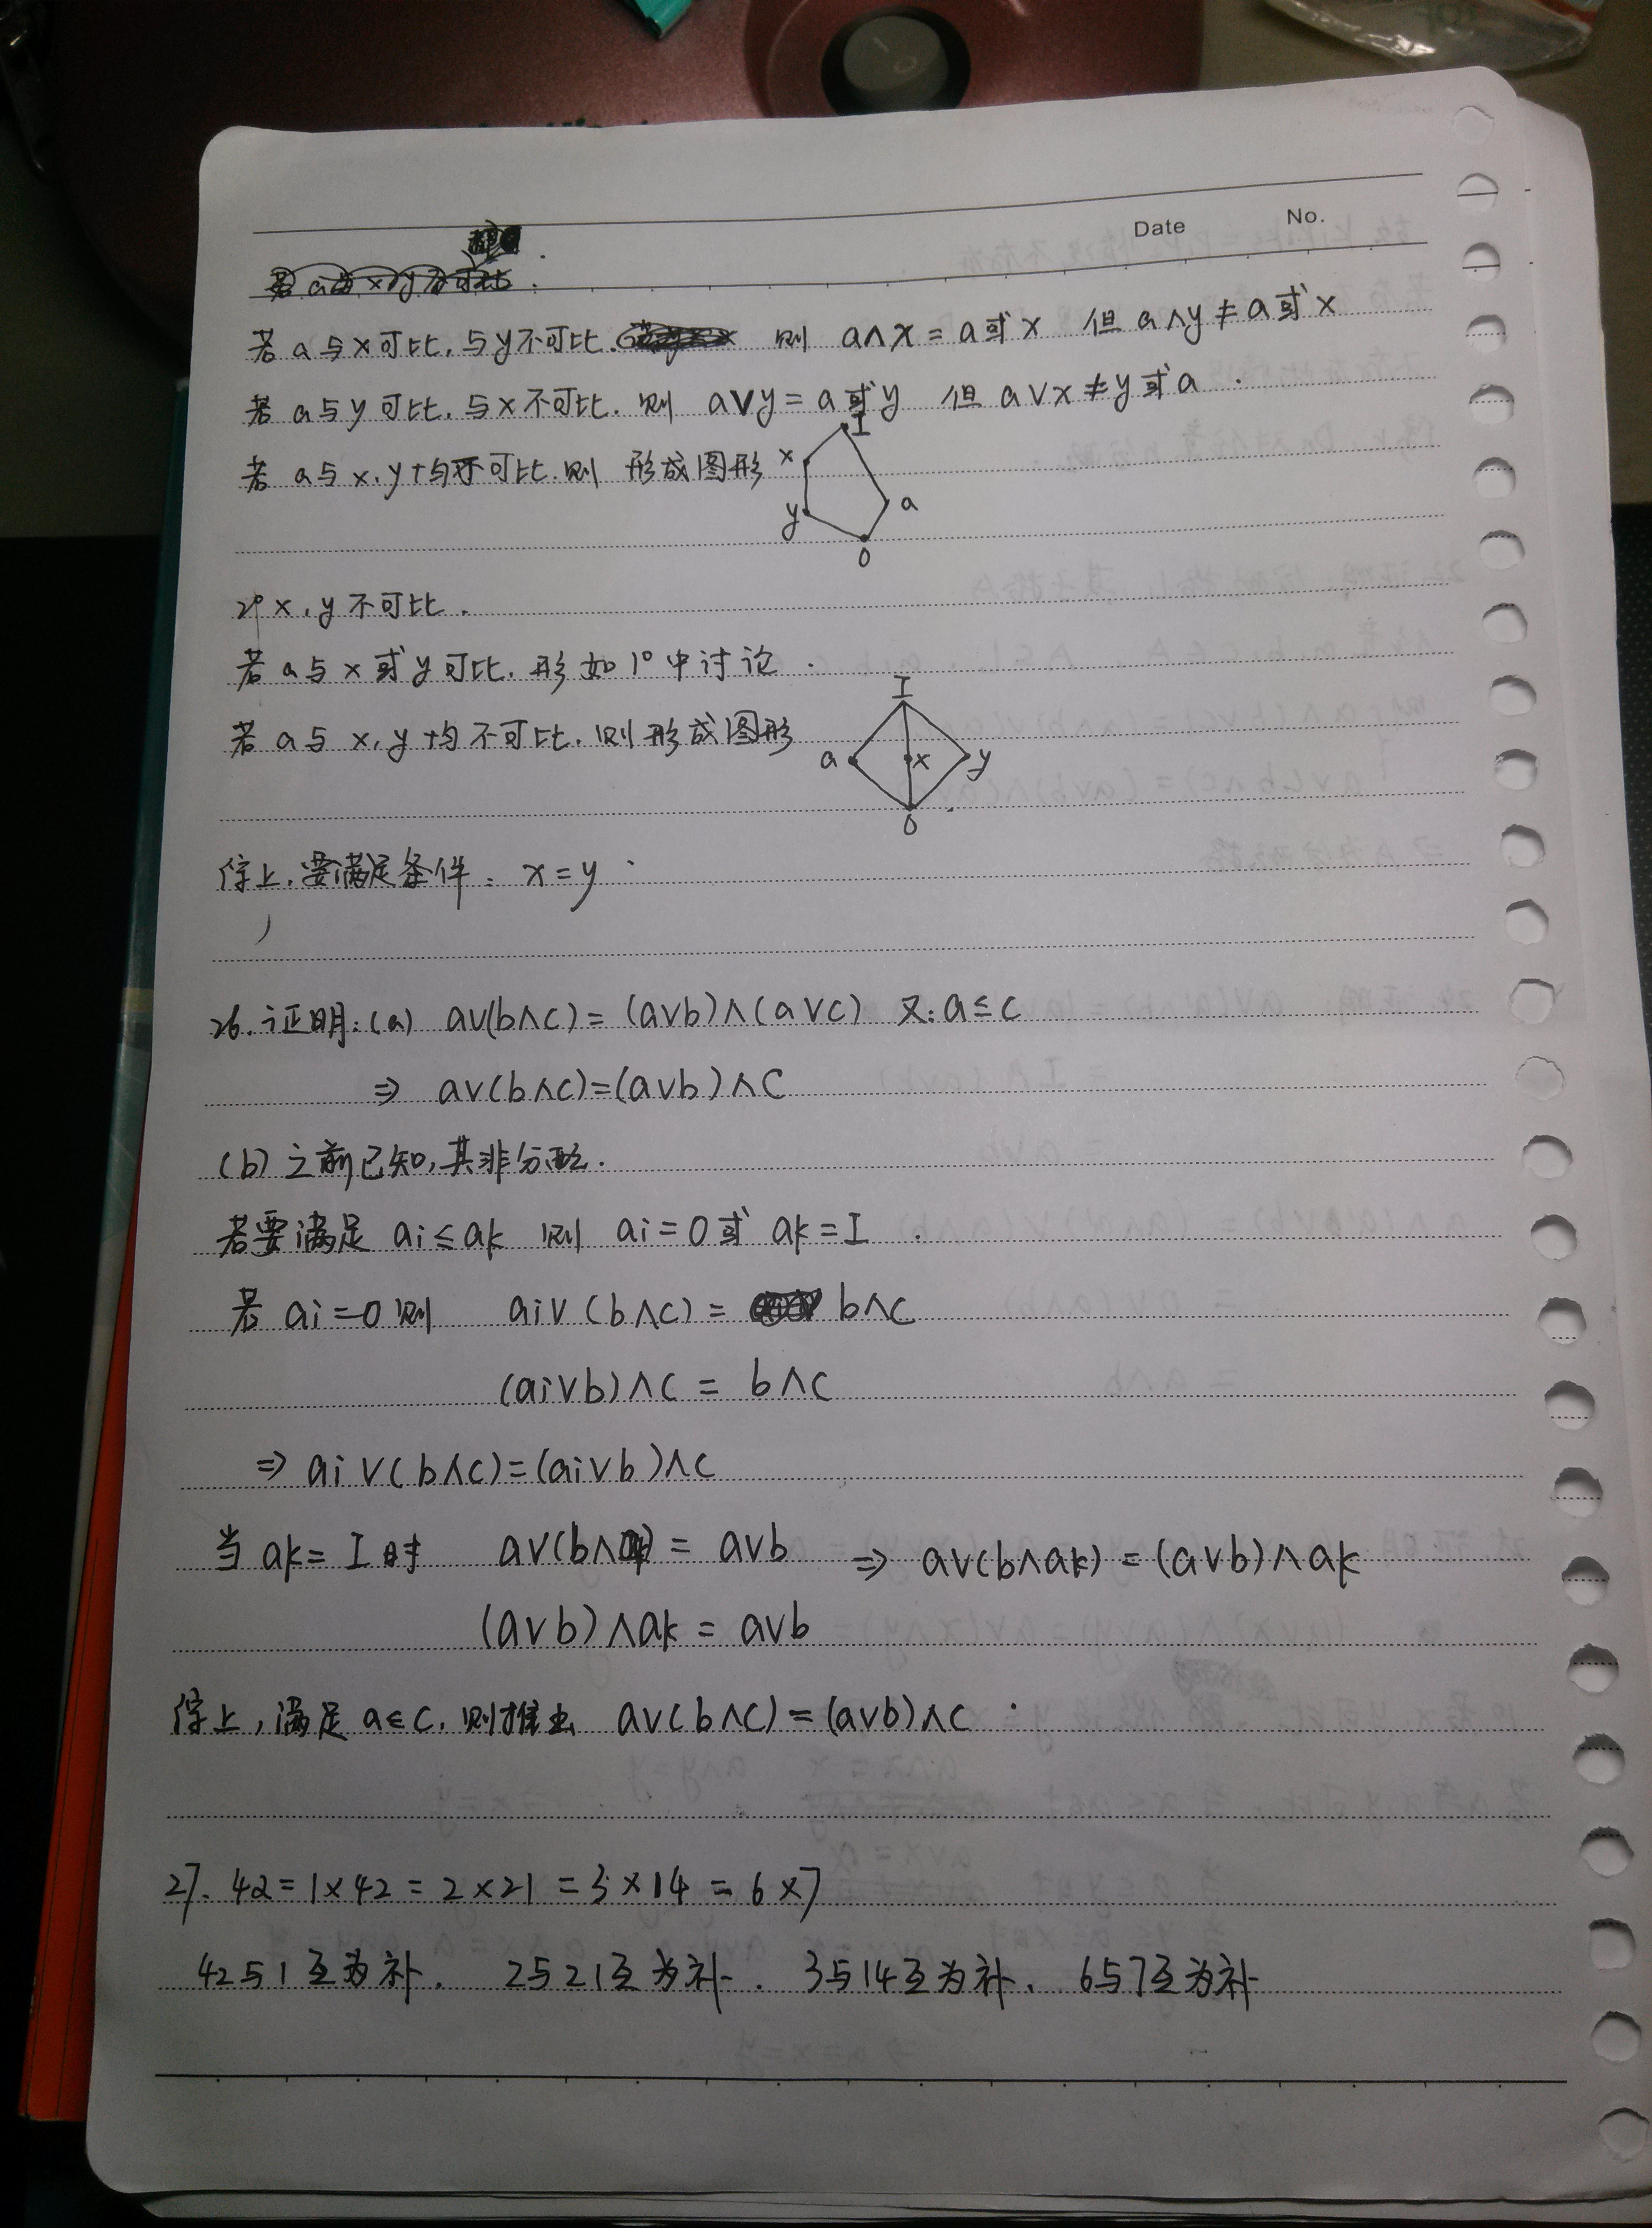 Date No.
若a与x可比,与y不可比. 则 a∧x=a或x 但 a∧y≠a或x
若a与y可比,与x不可比. 则 a∨y=a或y 但 a∨x≠y或a.
若a与x,y均不可比.则 形成图形
I
x
a
y
0
2° x,y不可比.
若a与x或y可比.形如1°中讨论.
若a与x,y均不可比.则形成图形
I
a x y
0
综上,要满足条件: x=y
26.证明:(a) a∨(b∧c)=(a∨b)∧(a∨c) 又:a≤c
⇒ a∨(b∧c)=(a∨b)∧c
(b)之前已知,其非分配.
若要满足 ai≤ak 则 ai=0或 ak=I.
若 ai=0则 ai∨(b∧c)= b∧c
(ai∨b)∧c = b∧c
⇒ ai∨(b∧c)=(ai∨b)∧c
当 ak=I时 a∨(b∧ak) = a∨b ⇒ a∨(b∧ak) = (a∨b)∧ak
(a∨b)∧ak = a∨b
综上,满足 a≤c,则推出 a∨(b∧c)=(a∨b)∧c.
27. 42=1×42=2×21=3×14=6×7
42与1互为补. 2与21互为补. 3与14互为补. 6与7互为补